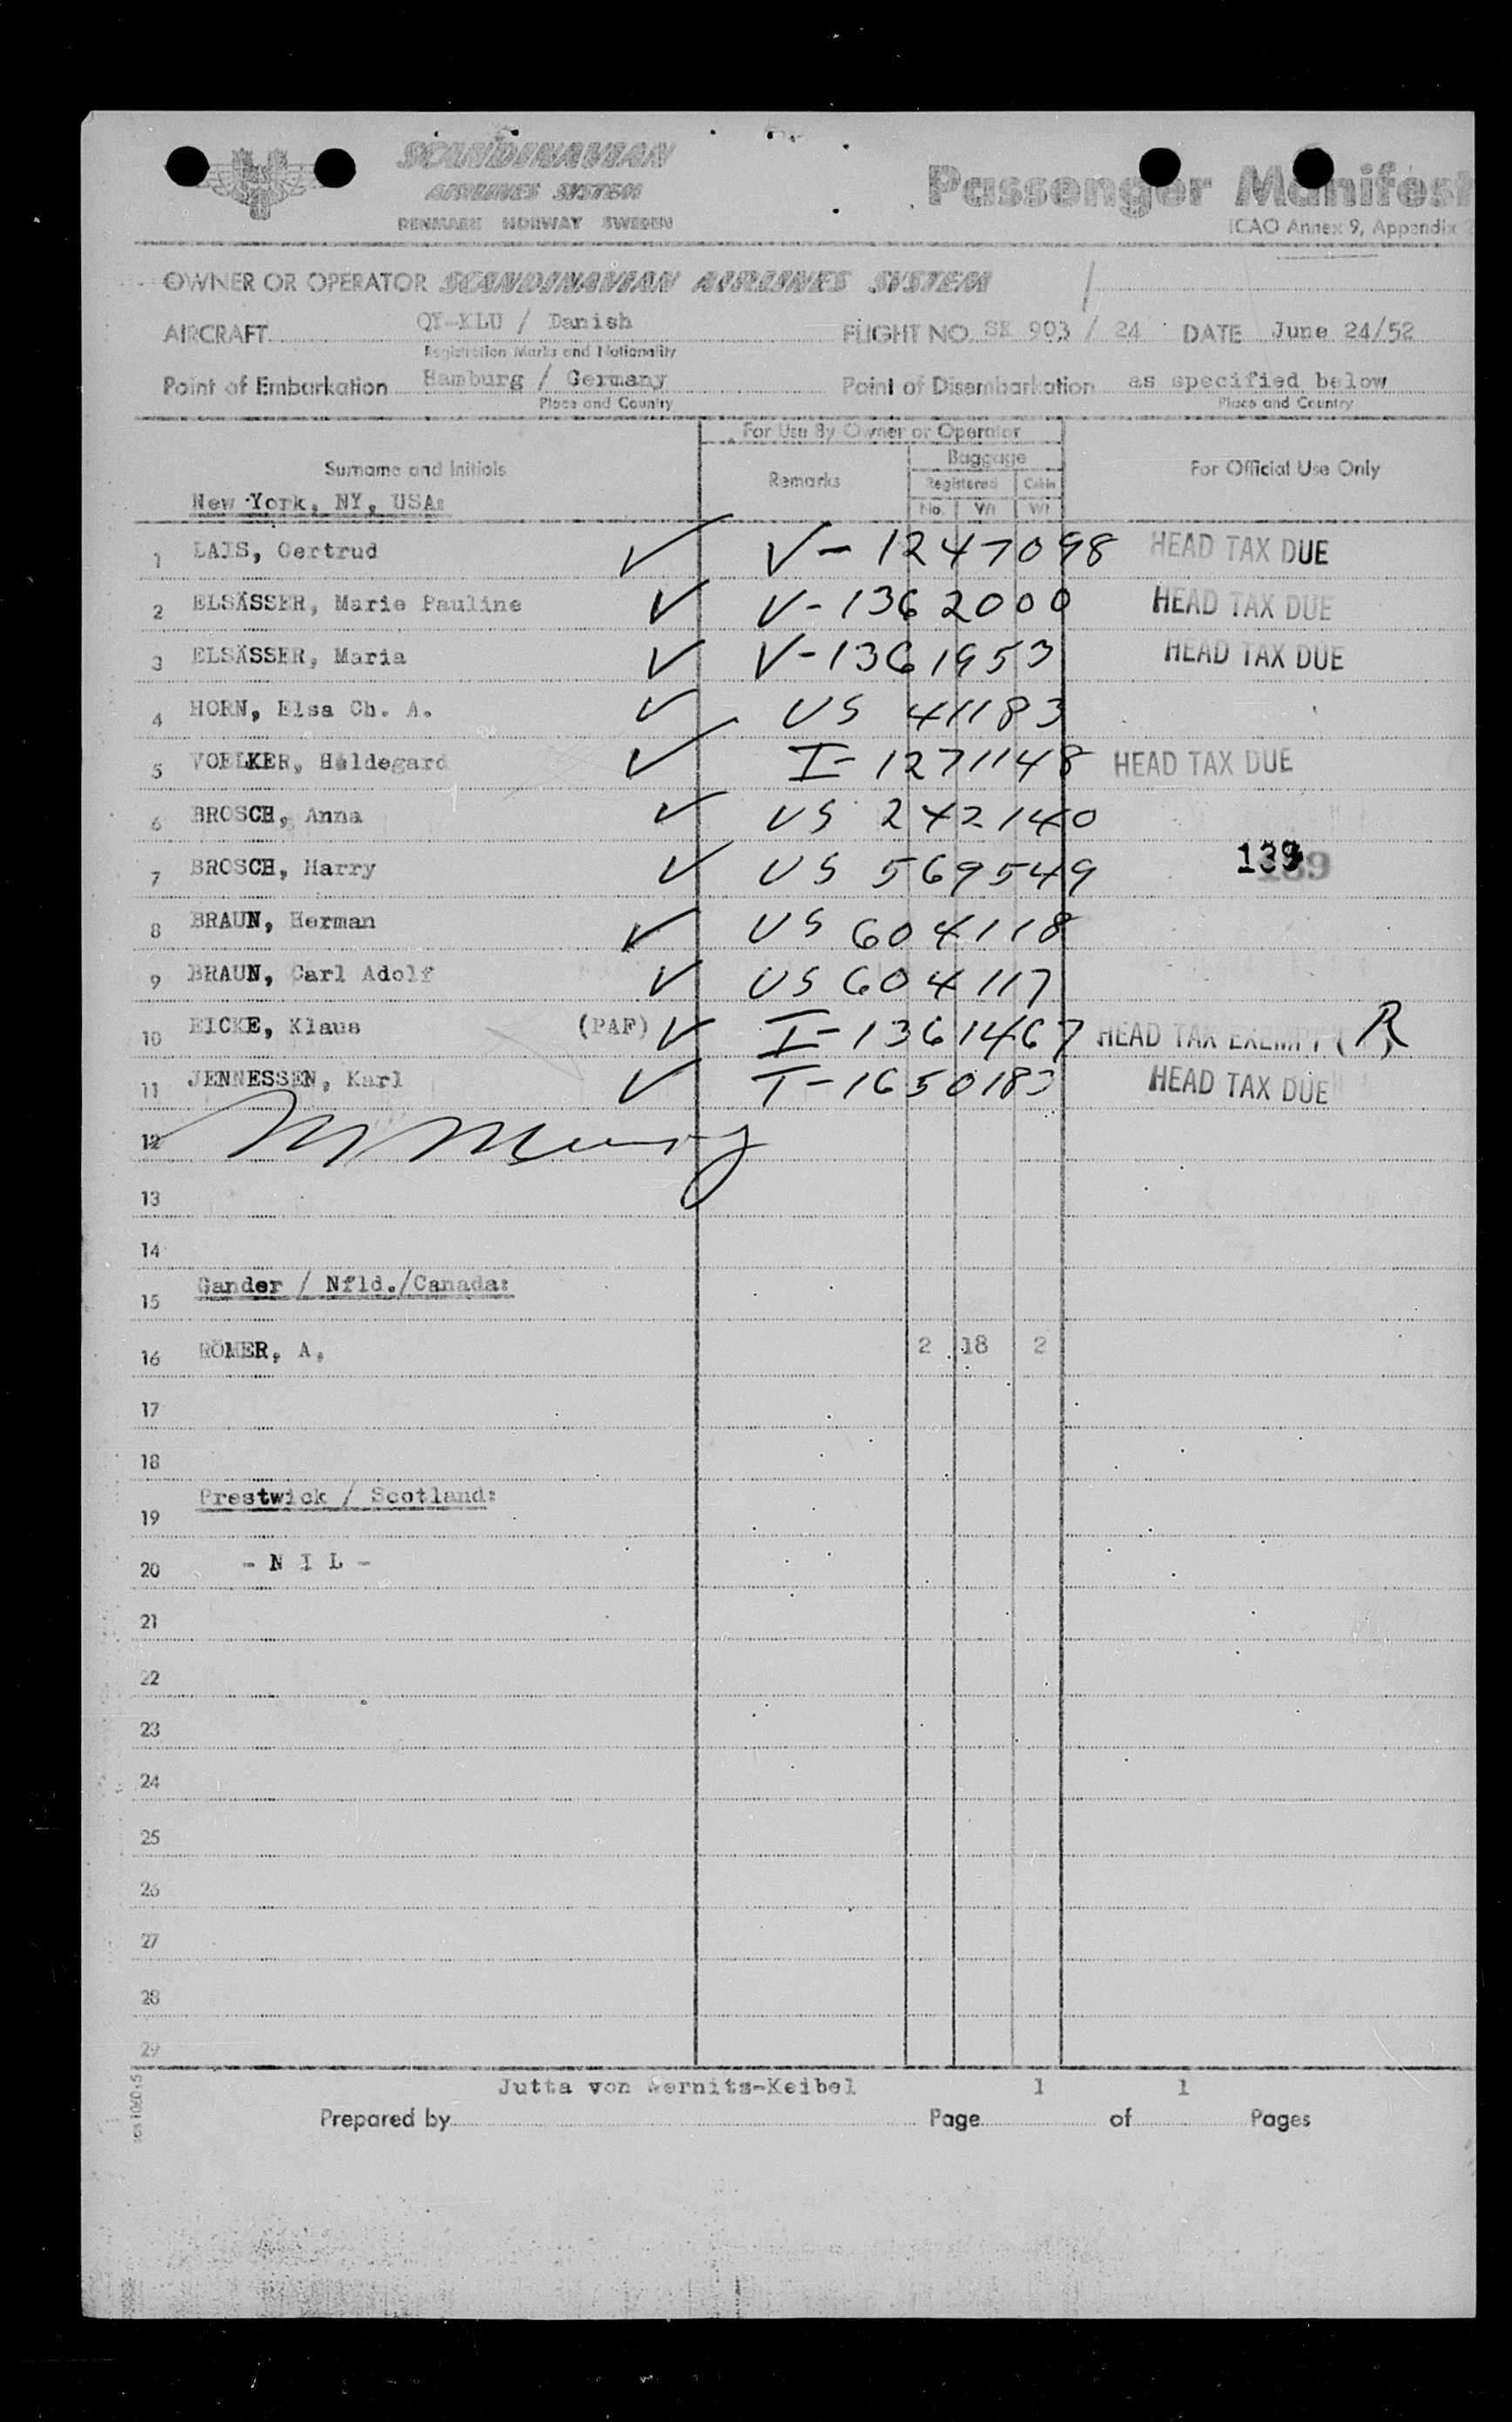 SCANDINAVIAN
AIRLINES SYSTEM
DENMARK NORWAY SWEDEN
Passenger Manifest
ICAO Annex 9, Appendix
OWNER OR OPERATOR SCANDINAVIAN AIRLINES SYSTEM
AIRCRAFT OY-KLU / Danish FLIGHT NO. SK 903 / 24 DATE June 24/52
Registration Marks and Nationality
Point of Embarkation Hamburg / Germany Point of Disembarkation as specified below
Place and Country Place and Country
For Use By Owner or Operator
Surname and Initials Remarks Baggage For Official Use Only
Registered Cabin
No. Wt Wt
New York, NY, USA:
1 LAIS, Gertrud ✓ V-1247098 HEAD TAX DUE
2 ELSÄSSER, Marie Pauline ✓ V-1362000 HEAD TAX DUE
3 ELSÄSSER, Maria ✓ V-1361953 HEAD TAX DUE
4 HORN, Elsa Ch. A. ✓ US 41183
5 VOELKER, Hildegard ✓ I-1271148 HEAD TAX DUE
6 BROSCH, Anna ✓ US 242140
7 BROSCH, Harry ✓ US 569549 139
8 BRAUN, Herman ✓ US 604118
9 BRAUN, Carl Adolf ✓ US 604117
10 EICKE, Klaus (PAF) ✓ I-1361467 HEAD TAX EXEMPT ( R
11 JENNESSEN, Karl ✓ I-1650183 HEAD TAX DUE
12
13
14
15 Gander / Nfld./Canada:
16 RÖMER, A. 2 18 2
17
18
19 Prestwick / Scotland:
20 - N I L -
21
22
23
24
25
26
27
28
29
Jutta von Wernitz-Keibel 1 1
Prepared by Page of Pages